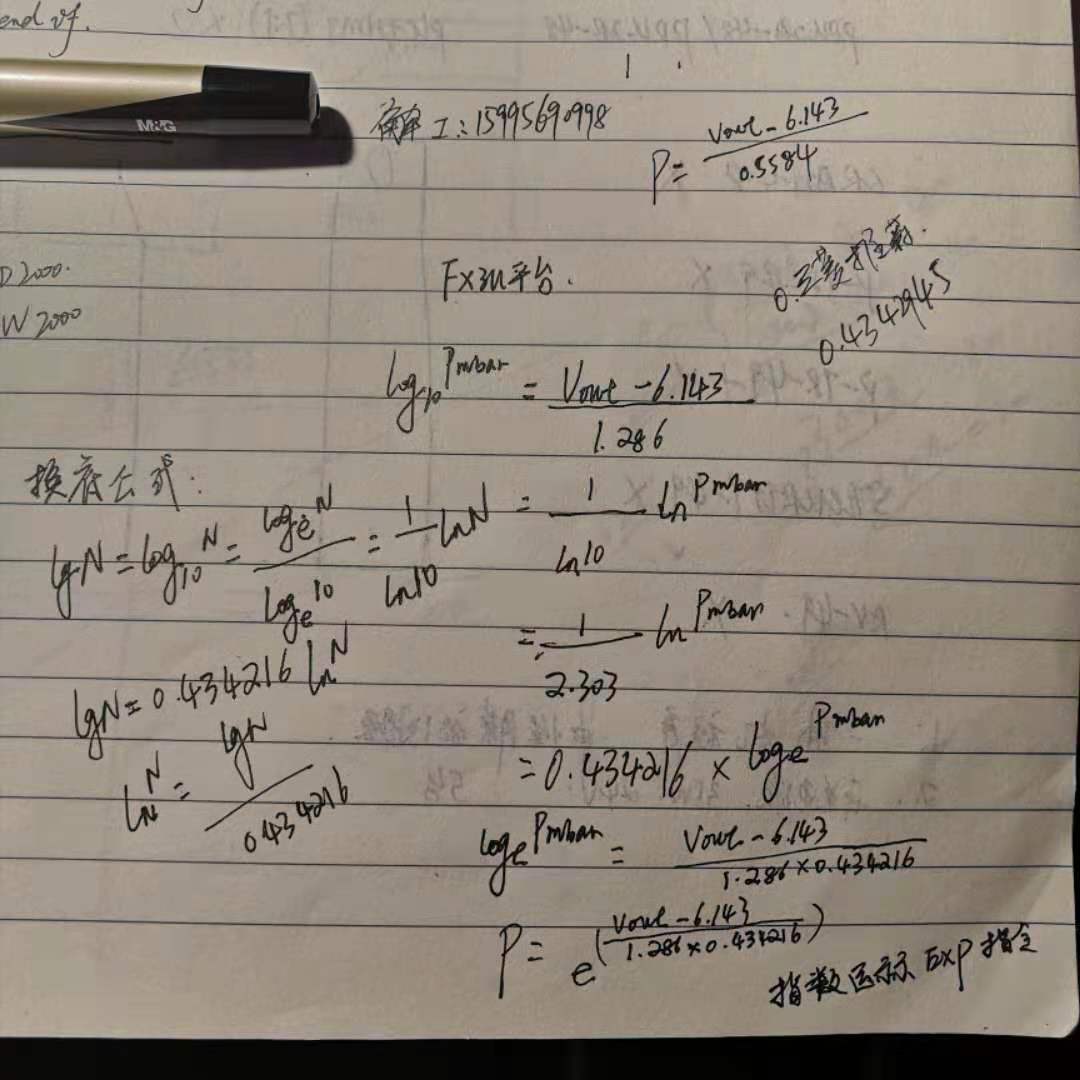 end of.
M&G
工:15995690998
P= (Vout-6.143)/0.5584
D2000.
FX3U平台.
0.4342945
W2000
log₁₀^Pmbar = (Vout-6.143)/1.286
换底公式:
lgN=log₁₀^N = (logₑ^N)/(logₑ^10) = (1/ln10) lnN = (1/ln10) ln^Pmbar
= (1/2.303) ln^Pmbar
lgN=0.434216 ln^N
ln^N = lgN/0.434216
=0.434216 × logₑ^Pmbar
logₑ^Pmbar = (Vout-6.143)/(1.286×0.434216)
P= e^((Vout-6.143)/(1.286×0.434216))
指数 Exp 指令